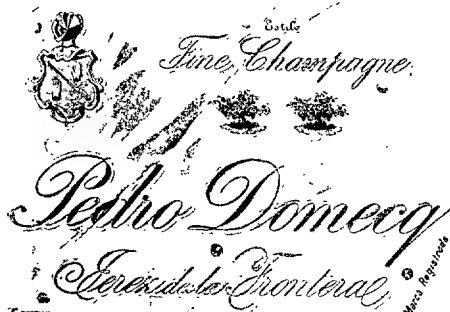 Estilo
Fine Champagne.
Pedro Domecq
Jerez de la Frontera
Marca Registrada